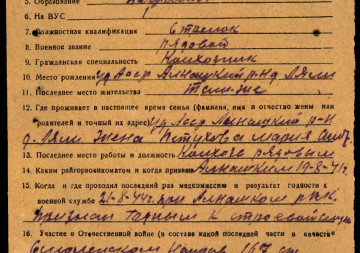 5. Образование
6. На ВУС
7. Должностная квалификация Стрелок
8. Военное звание рядовой
9. Гражданская специальность Колхозник
10. Место рождения уд Асср Алнашский р-н д. Ляли
11. Последнее место жительства Там же
12. Где проживает в настоящее время семья (фамилия, имя и отчество жены или
родителей и точный их адрес) уд Асср Алнашский р-н
д. Ляли жена Петухова Мария
13. Последнее место работы и должность Колхоз рядовым
14. Каким райгорвоенкоматом и когда призван Алнашским 19-8-41г.
15. Когда и где проходил последний раз медкомиссию и результат годности к
военной службе 21-8-41г. при Алнашском рвк.
признан годным к строевой службе
16. Участие в Отечественной войне (в составе какой последней части в качестве
167